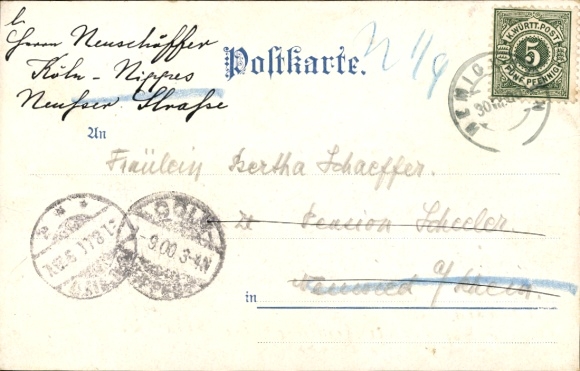 Herrn Neuschöffer
Köln-Nippes
Neußer Straße
Postkarte.
N 1/9
K. WÜRTT. POST
5
FÜNF PFENNIG
30
An
Fräulein Bertha Schaeffer.
Pension Scheeler.
Neuwied a/Rhein.
in
CÖLN
9.00 3-4N